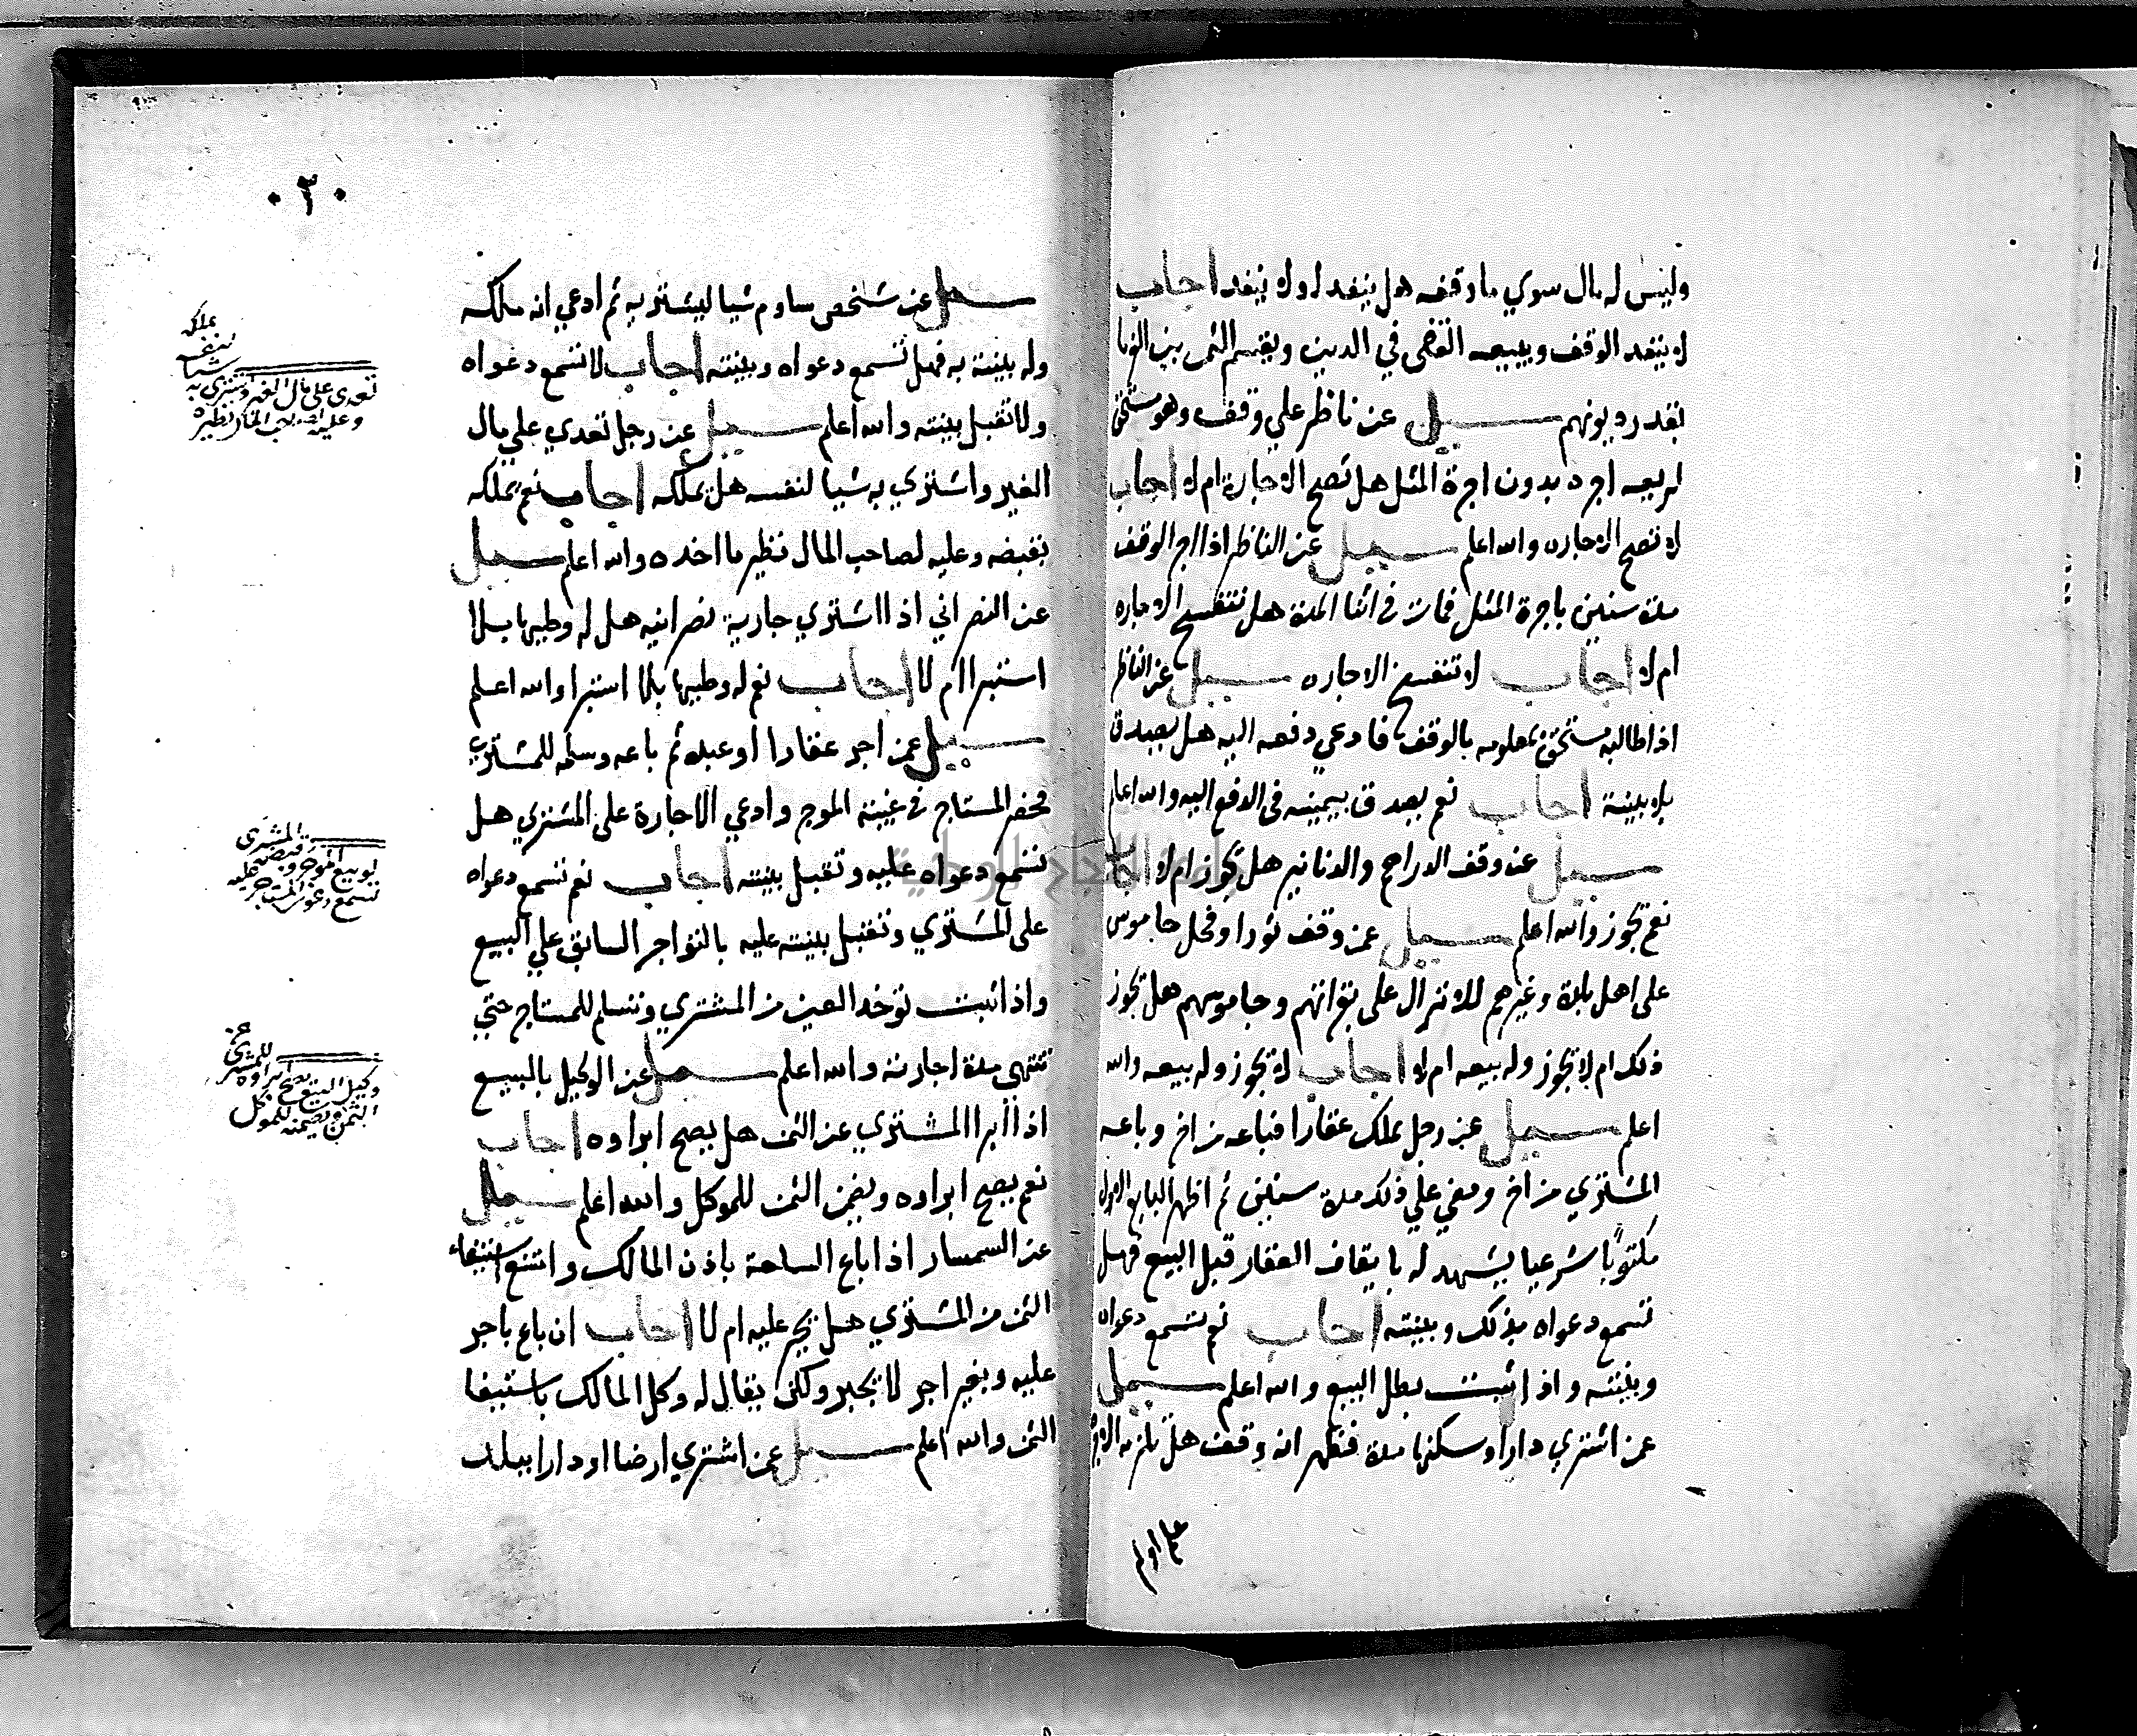 وليس له مال سوي ما وقفه هل ينفد او لا ينفد اجاب
لا ينفد الوقف ويبيعه القضي في الدين ويقسم الثمن بين الغرما
بقدر ديونهم سيل عن ناظر علي وقف وهو مستحق
لريعه اجره بدون اجرة المثل هل تصح الاجارة ام لا اجاب
لا تصح الاجاره والله اعلم سيل عن الناظر اذا اجر الوقف
مدة سنين باجرة المثل فمات في اثنا المدة هل تنفسخ الاجاره
ام لا اجاب لا تنفسخ الاجاره سيل عن الناظر
اذا طالبه مستحق بمعلومه بالوقف فادعي دفعه اليه هل يصدق
بلا بينة اجاب نعم يصدق بيمينه في الدفع اليه والله اعلم
سيل عن وقف الدراهم والدنانير هل يجوز ام لا اجاب
نعم يجوز والله اعلم سيل عمن وقف ثورا او فحل جاموس
على اهل بلدة وغيرهم للانزال على بقراتهم وجاموسهم هل يجوز
ذلك ام لا يجوز وله بيعه ام لا اجاب لا يجوز وله بيعه والله
اعلم سيل عن رجل يملك عقارا فباعه من اخر وباعه
المشتري من اخر ومضي علي ذلك مدة سنين ثم اظهر البايع الاول
مكتوبا شرعيا يشهد له بايقاف العقار قبل البيع فهل
تسمع دعواه بذلك وبينته اجاب نعم تسمع دعواه
وبينته واذا ثبت بطل البيع والله اعلم سيل
عمن اشتري دارا وسكنها مدة فظهر انه وقف هل تلزمه الاجرة
٣٠
سيل عن شخص ساوم شيا ليشتريه ثم ادعي انه ملكه
وله بينة به فهل تسمع دعواه وبينته اجاب لا تسمع دعواه
ولا تقبل بينته والله اعلم سيل عن رجل تعدي علي مال
الغير واشتري به شيا لنفسه هل يملكه اجاب نعم يملكه
بقبضه وعليه لصاحب المال نظير ما اخده والله اعلم سيل
عن النصراني اذا اشتري جارية نصرانيه هل له وطيها بلا
استبرا ام لا اجاب نعم له وطيها بلا استبرا والله اعلم
سيل عمن اجر عقارا او عبده ثم باعه وسلمه للمشتري
فحضر المستاجر في غيبة الموجر وادعي الاجارة على المشتري هل
تسمع دعواه عليه وتقبل بينته اجاب نعم تسمع دعواه
على المشتري وتقبل بينته عليه بالتواجر السابق علي البيع
واذا ثبت توخد العين من المشتري وتسلم للمستاجر حتي
تنتهي مدة اجارته والله اعلم سيل عن الوكيل بالبيع
اذا ابرا المشتري عن الثمن هل يصح ابراوه اجاب
نعم يصح ابراوه ويضمن الثمن للموكل والله اعلم سيل
عن السمسار اذا باع الساحة باذن المالك وامتنع استيفاء
الثمن من المشتري هل يجبر عليه ام لا اجاب ان باع باجر
عليه وبغير اجر لا يجبر ولكن يقال له وكل المالك باستيفا
الثمن والله اعلم سيل عمن اشتري ارضا او دارا ببلد
تعدى على مال الغير واشترى به
شيا لنفسه
يملكه
وعليه لصاحب المال نظيره
لو بيع الموجر وقبضه
المشترى
تسمع دعوى المستاجر عليه
وكيل البيع يصح ابراوه
للمشتري عن
الثمن ويضمنه للموكل